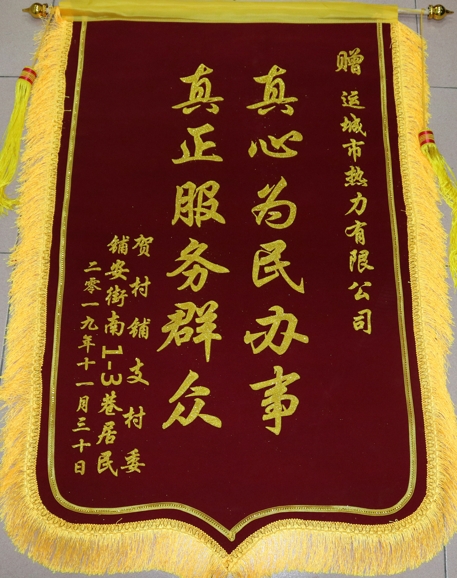 赠 运城市热力有限公司
真心为民办事
真正服务群众
贺村铺支村委
铺安街南1-3巷居民
二零一九年十一月三十日